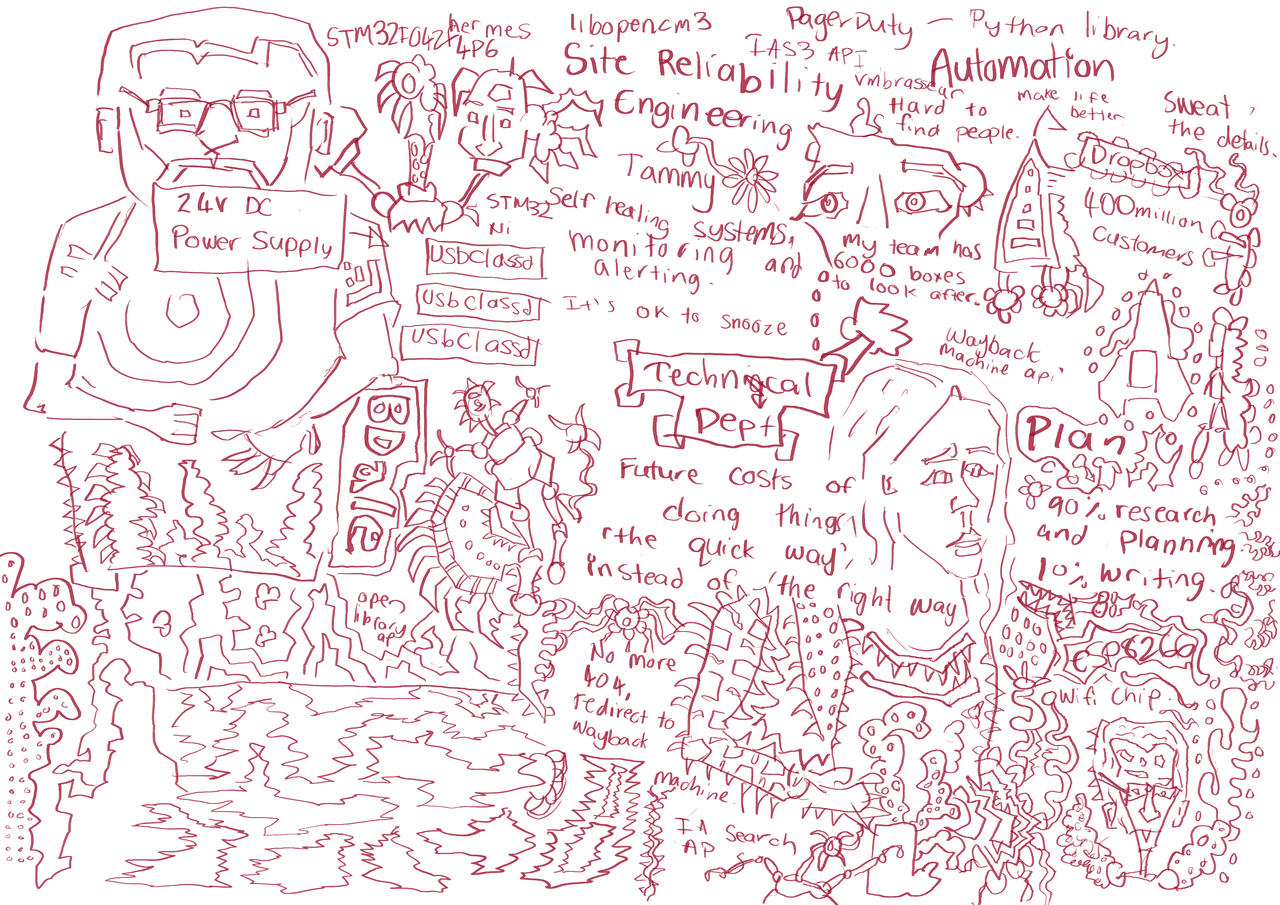 STM32F042F4P6
Aermes
libopencm3
PagerDuty - Python library.
IAS3 API
Site Reliability
Engineering
Tammy
vmbrasseur
Automation
Hard to
find people.
make life
better
Sweat
the details.
Dropbox
400 million
Customers
24V DC
Power Supply
STM32
Ni
Self healing systems,
monitoring and
alerting.
usbclassd
usbclassd
usbclassd
It's ok to snooze
My team has
6000 boxes
to look after.
Wayback
machine api
Technical
Dept
Future costs of
doing things
'the quick way'
instead of 'the right way
Plan
90% research
and planning
10% writing.
open
library
ap
No more
404,
redirect to
wayback
machine
IA Search
AP
ESP8266
Wifi chip.